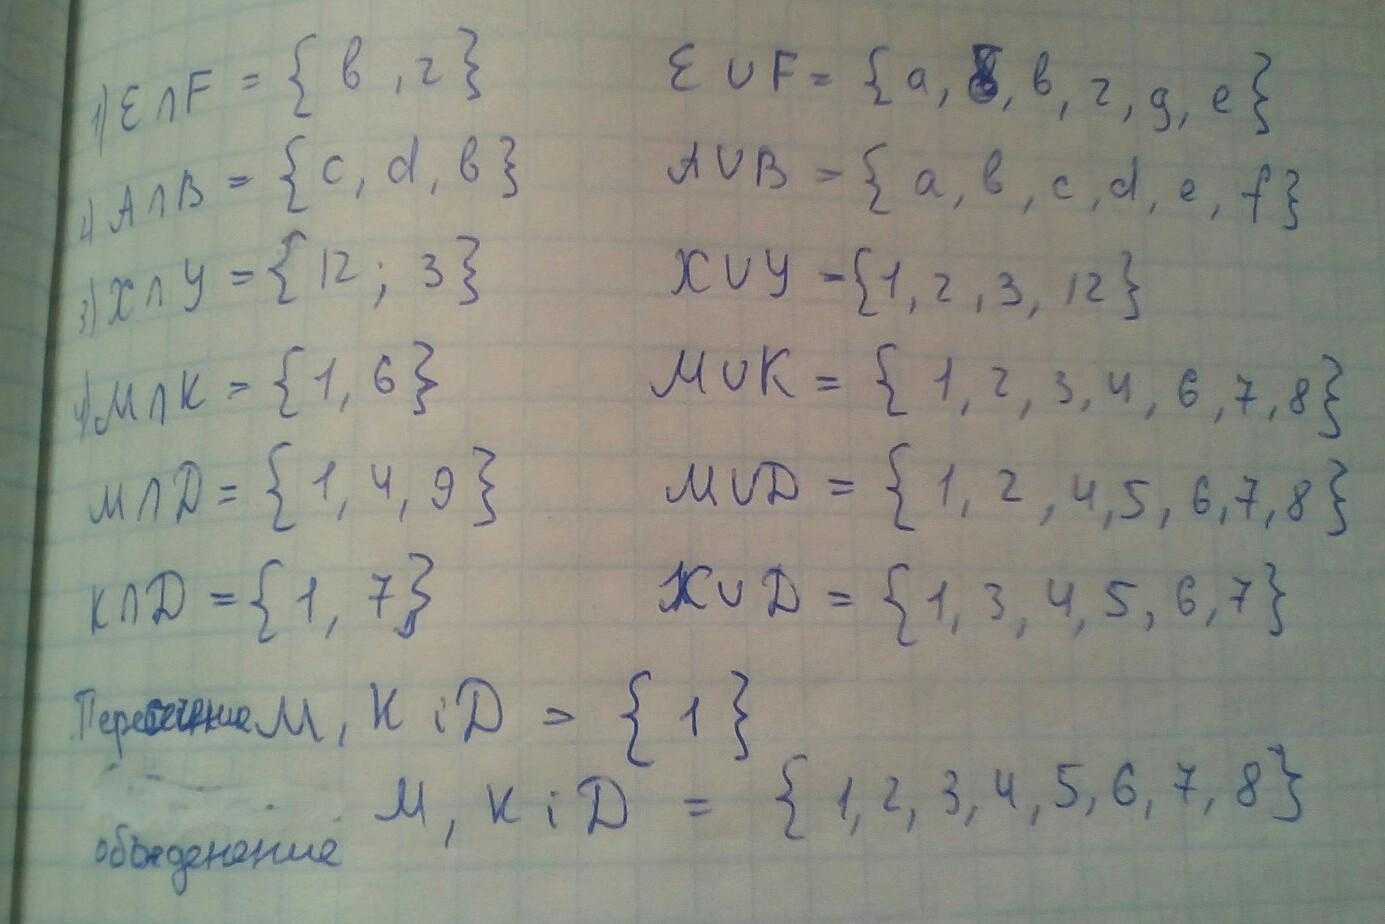 1) E ∩ F = { в , г }   E ∪ F = { а, б, в, г, g, е }
2) A ∩ B = { c, d, в }   A ∪ B = { a, в, c, d, e, f }
3) X ∩ У = { 12 ; 3 }   X ∪ У = { 1, 2, 3, 12 }
4) M ∩ K = { 1, 6 }   M ∪ K = { 1, 2, 3, 4, 6, 7, 8 }
M ∩ D = { 1, 4, 9 }   M ∪ D = { 1, 2, 4, 5, 6, 7, 8 }
K ∩ D = { 1, 7 }   K ∪ D = { 1, 3, 4, 5, 6, 7 }
Пересечение M, K i D = { 1 }
M, K i D = { 1, 2, 3, 4, 5, 6, 7, 8 }
объеденение